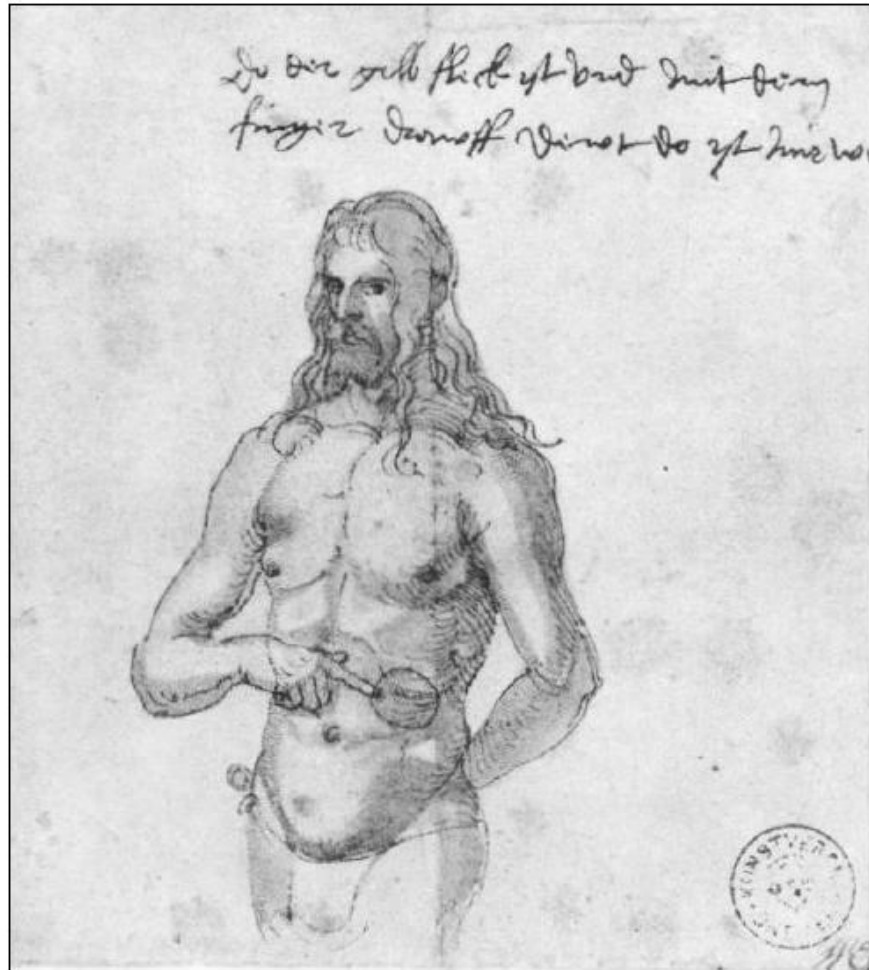 Do der gelb fleck ist vnd mit dem
finger drawff dewt do ist mir we
KUNSTVERE